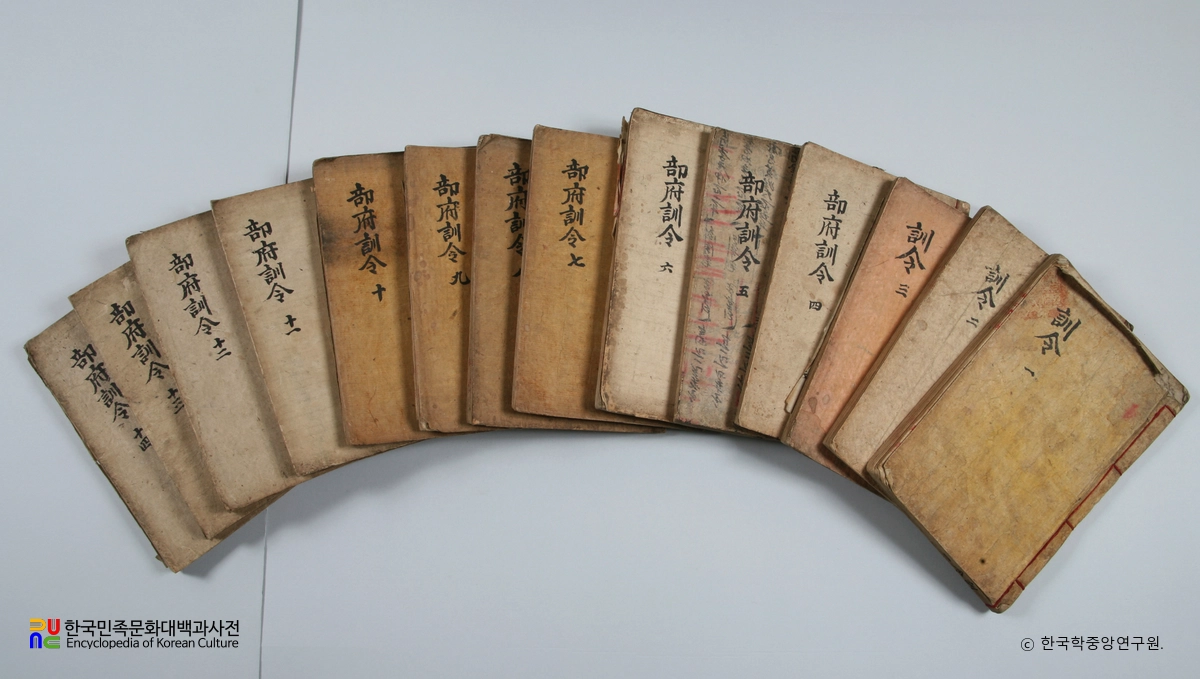 訓令 一
訓令 二
訓令 三
部府訓令 四
部府訓令 五
部府訓令 六
部府訓令 七
部府訓令
部府訓令 九
部府訓令 十
部府訓令 十一
部府訓令 十二
部府訓令 十三
部府訓令 十四
한국민족문화대백과사전
Encyclopedia of Korean Culture
ⓒ 한국학중앙연구원.